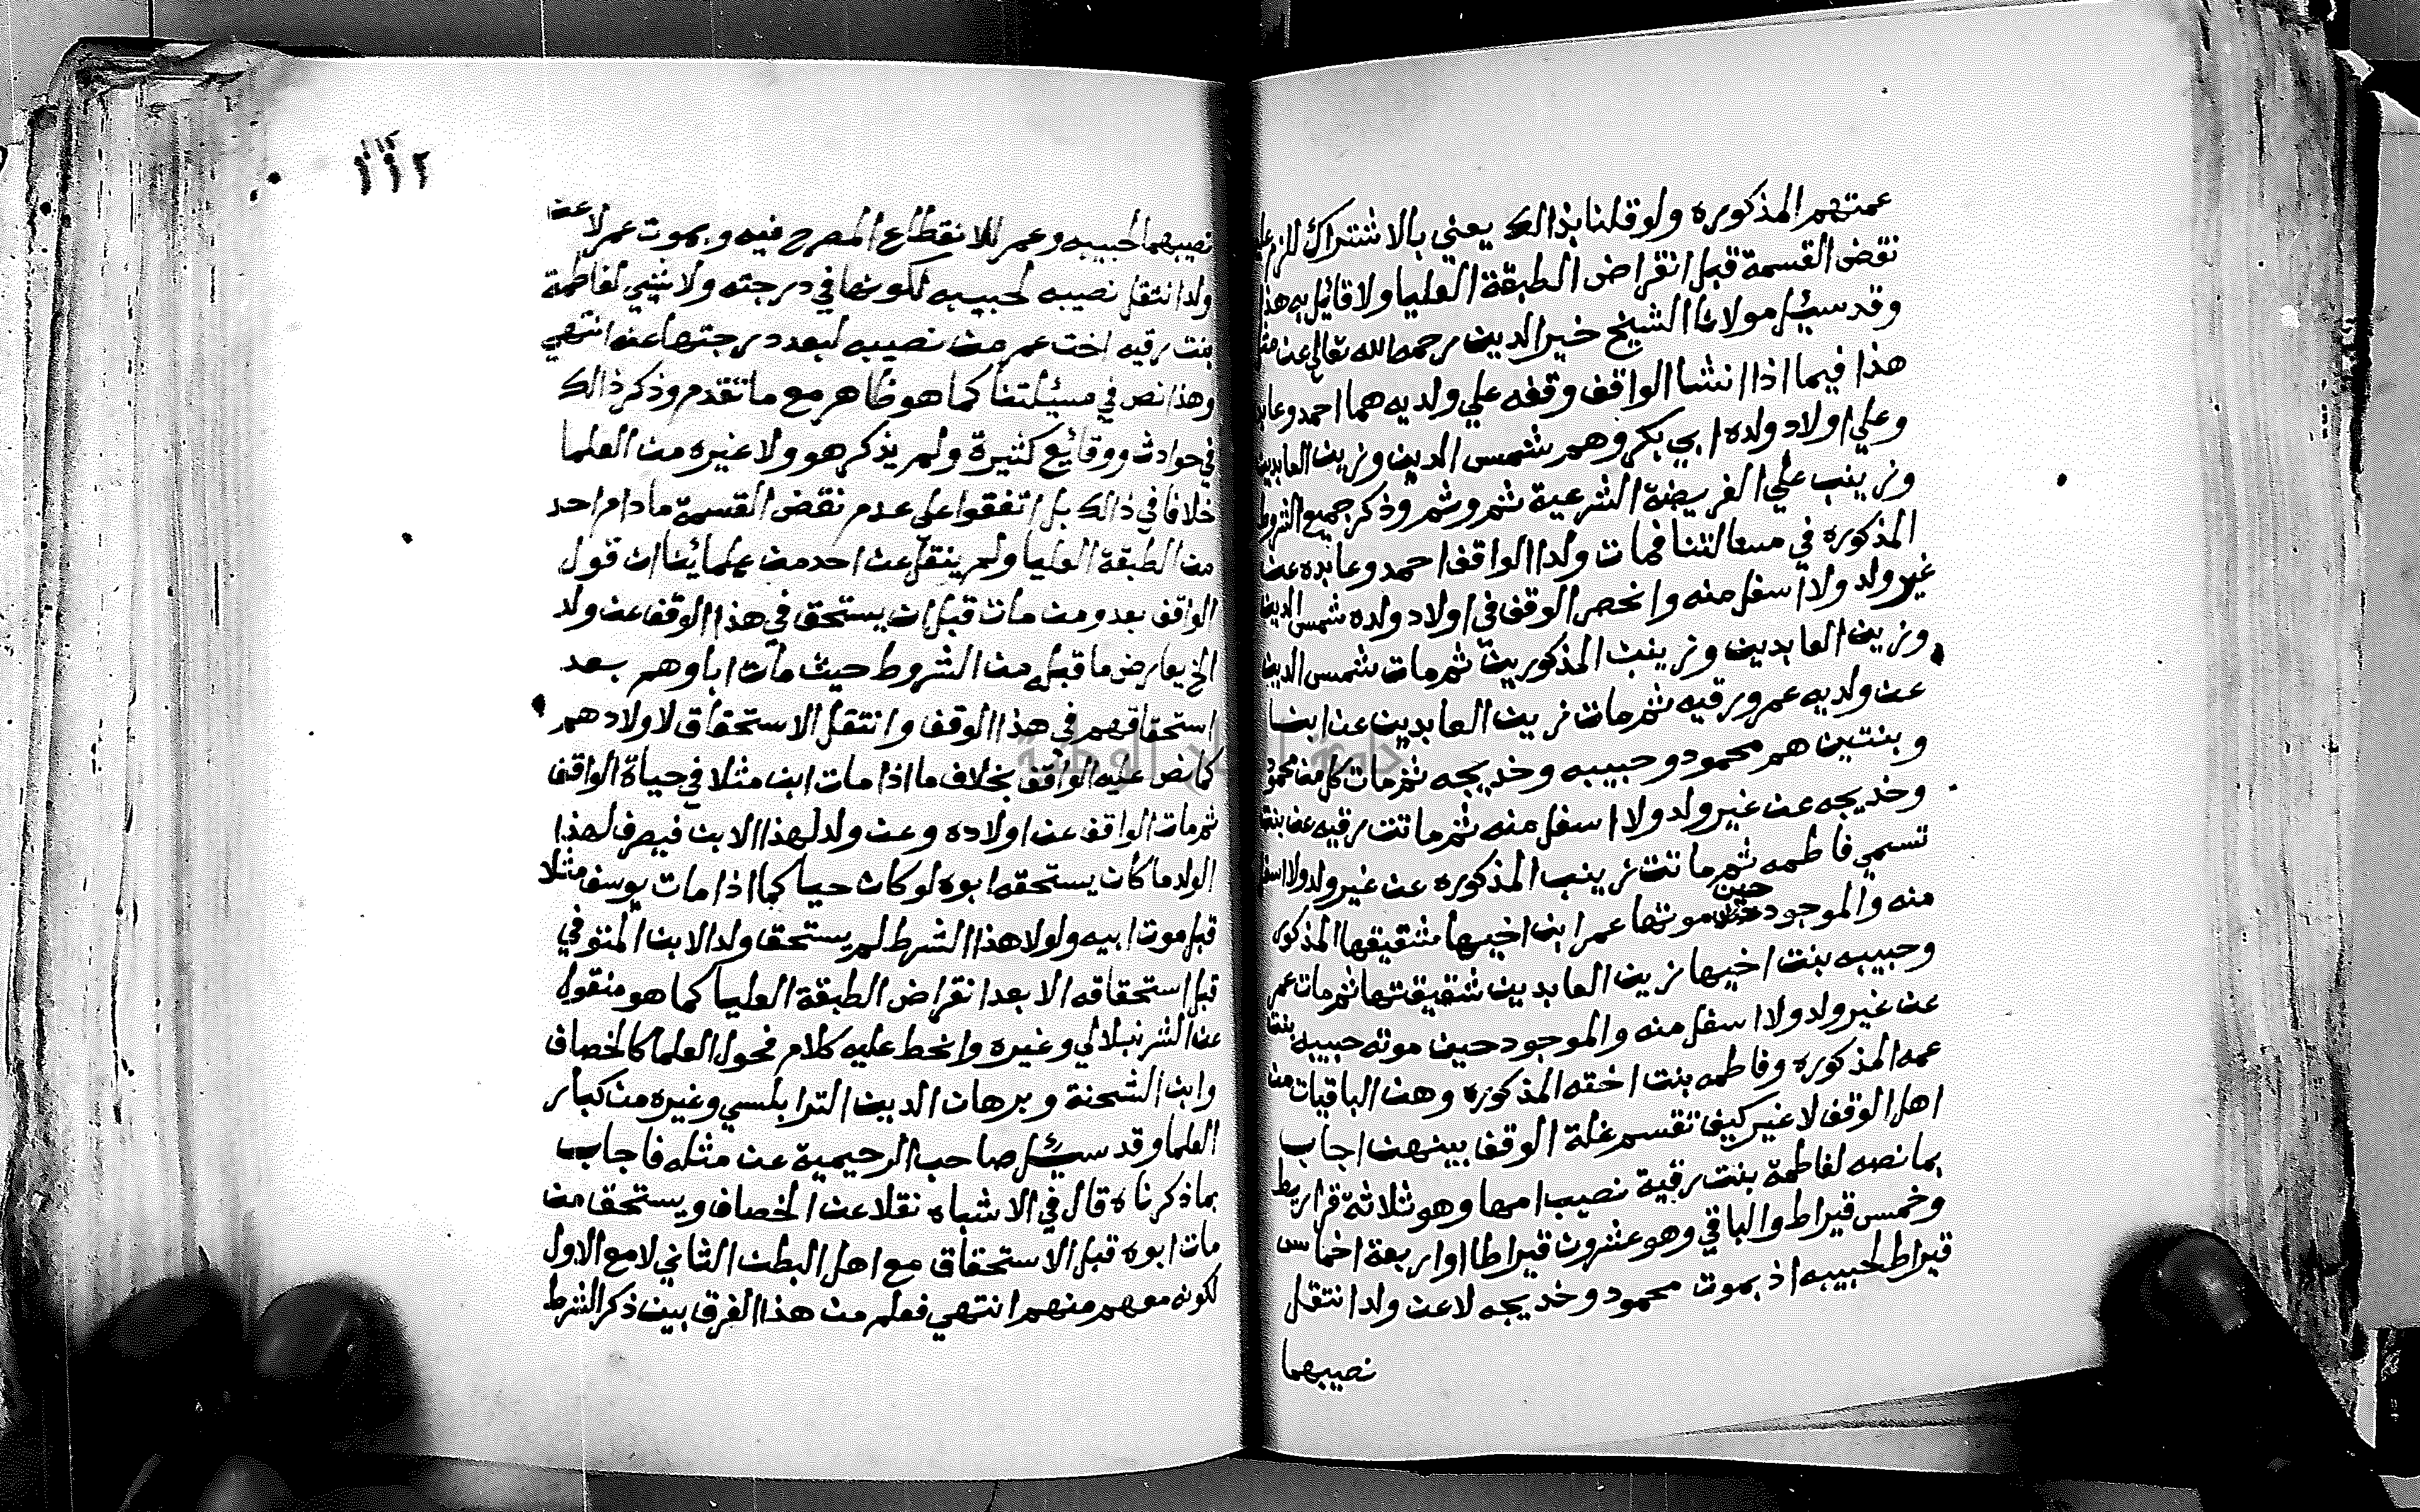 عمتهم المذكوره ولو قلنا بذالك يعني بالاشتراك للزم عليه
نقض القسمة قبل انقراض الطبقة العليا ولا قائل به هذا
وقد سئل مولانا الشيخ خير الدين رحمه الله تعالي عن مثل
هذا فيما اذا انشا الواقف وقفه علي ولديه هما احمد وعابده
وعلي اولاد ولده ابي بكر وهم شمس الدين وزين العابدين
وزينب علي الفريضة الشرعية ثم وثم وذكر جميع الشروط
المذكوره في مسالتنا فمات ولدا الواقف احمد وعابده عن
غير ولد ولا اسفل منه وانحصر الوقف في اولاد ولده شمس الدين
وزين العابدين وزينب المذكورين ثم مات شمس الدين
عن ولديه عمر ورقيه ثم مات زين العابدين عن ابن
وبنتين هم محمود وحبيبه وخديجه ثم مات كل من محمود
وخديجه عن غير ولد ولا اسفل منه ثم ماتت رقيه عن بنت
تسمي فاطمه ثم ماتت زينب المذكوره عن غير ولد ولا اسفل
منه والموجود حين موتها عمر ابن اخيها شقيقها المذكور
وحبيبه بنت اخيها زين العابدين شقيقها ثم مات عمر
عن غير ولد ولا اسفل منه والموجود حين موته حبيبه بنت
عمه المذكوره وفاطمه بنت اخته المذكوره وهن الباقيات من
اهل الوقف لا غير كيف تقسم غلة الوقف بينهن اجاب
بما نصه لفاطمة بنت رقية نصيب امها وهو ثلاثة قراريط
وخمس قيراط والباقي وهو عشرون قيراطا واربعة اخماس
قيراط لحبيبه اذ بموت محمود وخديجه لا عن ولد انتقل
نصيبهما
١١٢
نصيبهما لحبيبه وعمر للانقطاع المصرح فيه وبموت عمر لا عن
ولد انتقل نصيبه لحبيبه لكونها في درجته ولا شي لفاطمة
بنت رقيه اخت عمر من نصيبه لبعد درجتها عنه انتهي
وهذا نص في مسئلتنا كما هو ظاهر مع ما تقدم وذكر ذالك
في حوادث ووقائع كثيرة ولم يذكر هو ولا غيره من العلما
خلافا في ذالك بل اتفقوا علي عدم نقض القسمة ما دام احد
من الطبقة العليا ولم ينقل عن احد من علمائنا ان قول
الواقف بعد ومن مات قبل ان يستحق في هذا الوقف عن ولد
الخ يعارض ما قبله من الشروط حيث مات اباوهم بعد
استحقاقهم في هذا الوقف وانتقل الاستحقاق لاولادهم
كما نص عليه الواقف بخلاف ما اذا مات ابن مثلا في حياة الواقف
ثم مات الواقف عن اولاده وعن ولد لهذا الابن فيصرف لهذا
الولد ما كان يستحقه ابوه لو كان حيا كما اذا مات يوسف مثلا
قبل موت ابيه ولولا هذا الشرط لم يستحق ولد الابن المتوفي
قبل استحقاقه الا بعد انقراض الطبقة العليا كما هو منقول
عن الشرنبلالي وغيره وانحط عليه كلام فحول العلما كالخصاف
وابن الشحنة وبرهان الدين الترابلسي وغيره من كبار
العلما وقد سئل صاحب الرحيمية عن مثله فاجاب
بما ذكرناه قال في الاشباه نقلا عن الخصاف ويستحق من
مات ابوه قبل الاستحقاق مع اهل البطن الثاني لا مع الاول
لكونه معهم منهم انتهي فعلم من هذا الفرق بين ذكر الشرط